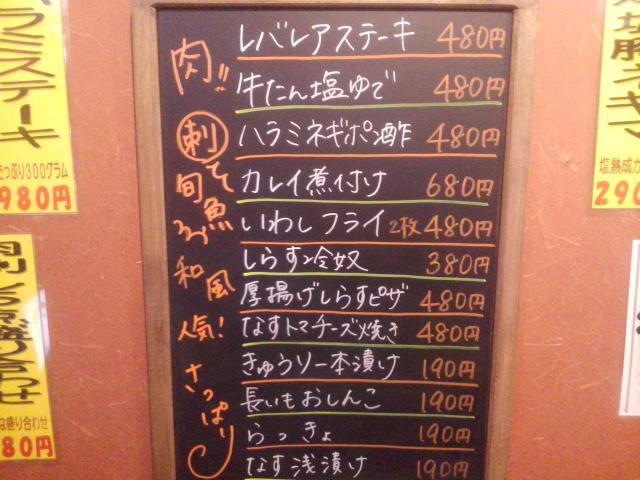 レバレアステーキ 480円
牛たん塩ゆで 480円
ハラミネギポン酢 480円
カレイ煮付け 680円
いわしフライ 2枚 480円
しらす冷奴 380円
厚揚げしらすピザ 480円
なすトマチーズ焼き 480円
きゅうり一本漬け 190円
長いもおしんこ 190円
らっきょ 190円
なす浅漬け 190円
肉!!
刺
旬魚
和風
人気!
さっぱり
ラミステーキ
たっぷり300グラム
980円
しらす盛り合わせ
な盛り合わせ
80円
塩熟成カ
290